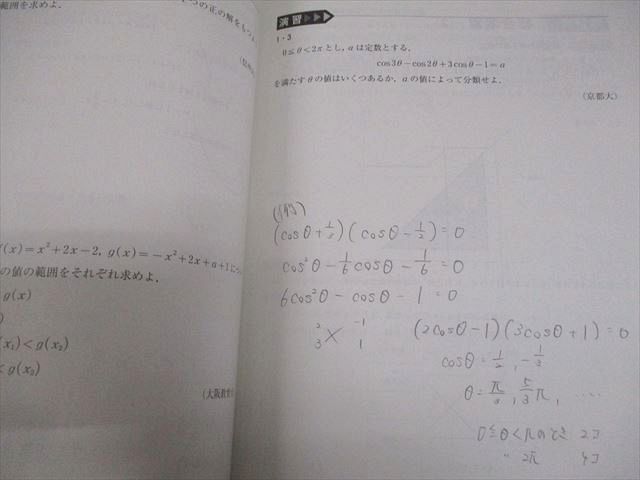 範囲を求めよ.
つの正の解をもつ
f(x)=x²+2x-2, g(x)=-x²+2x+a+1に
の値の範囲をそれぞれ求めよ.
g(x)
(x₁)<g(x₂)
<g(x₂)
(大阪教育
演習
1・3
0≦θ<2πとし, aは定数とする.
cos3θ-cos2θ+3cosθ-1=a
を満たすθの値はいくつあるか, aの値によって分類せよ.
(京都大)
(例)
(cosθ+1/3)(cosθ-1/2)=0
cos²θ-1/6cosθ-1/6=0
6cos²θ-cosθ-1=0
2 -1
3 1
(2cosθ-1)(3cosθ+1)=0
cosθ=1/2, -1/3
θ=π/3, 5/3π, ……
0≦θ<πのとき 2コ
〃 2π 4コ